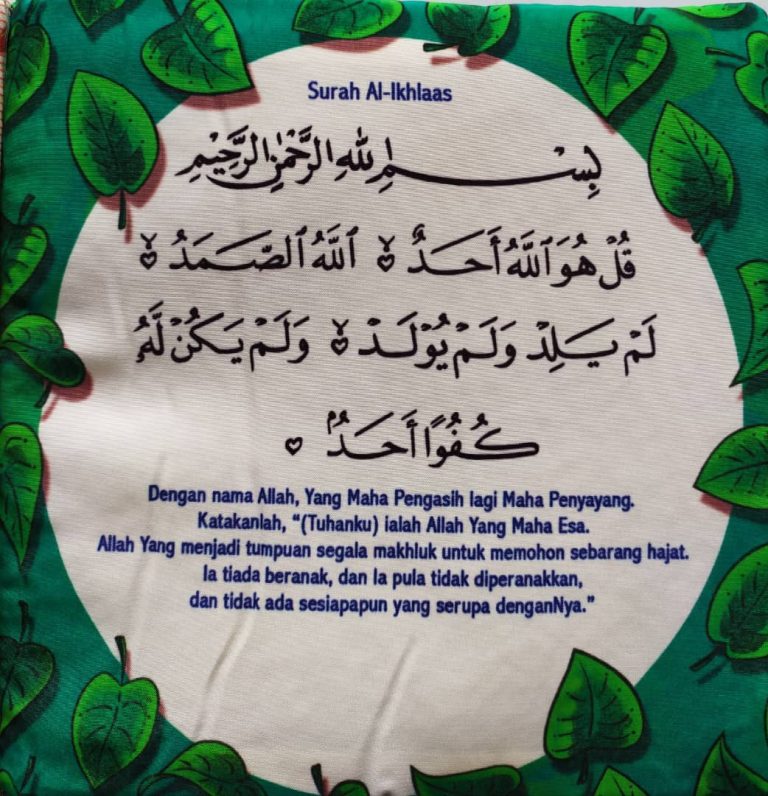 Surah Al-Ikhlaas
بِسْمِ اللهِ الرَّحْمٰنِ الرَّحِيْمِ
قُلْ هُوَ ٱللَّهُ أَحَدٌ ۝ ٱللَّهُ ٱلصَّمَدُ ۝
لَمْ يَلِدْ وَلَمْ يُوْلَدْ ۝ وَلَمْ يَكُنْ لَّهُ
كُفُوًا أَحَدٌ ۝
Dengan nama Allah, Yang Maha Pengasih lagi Maha Penyayang.
Katakanlah, “(Tuhanku) ialah Allah Yang Maha Esa.
Allah Yang menjadi tumpuan segala makhluk untuk memohon sebarang hajat.
Ia tiada beranak, dan Ia pula tidak diperanakkan,
dan tidak ada sesiapapun yang serupa denganNya.”